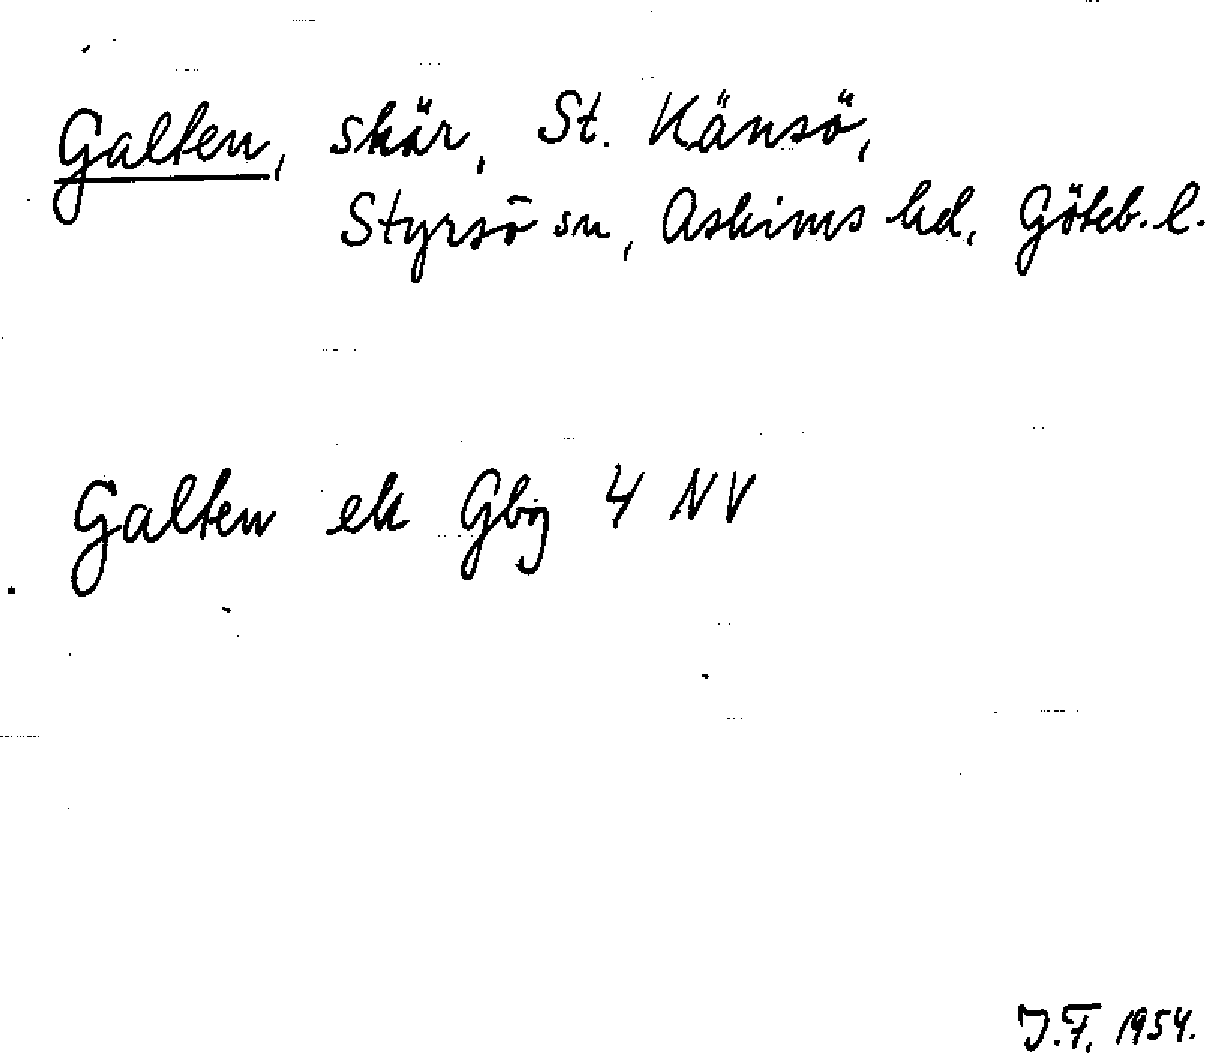 Galten, skär, St. Känsö,
Styrsö sn, Askims hd, Göteb. l.
Galten ek Gbg 4 NV
J.F. 1954.